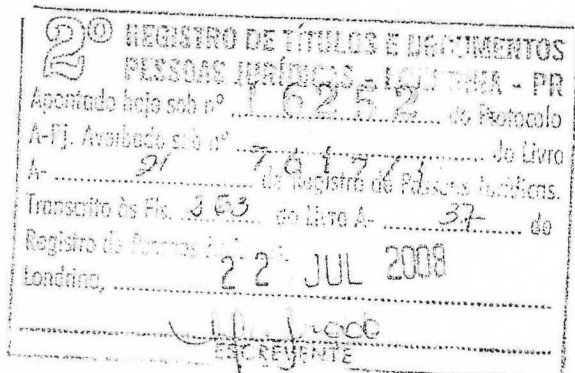 2º REGISTRO DE TÍTULOS E DOCUMENTOS
PESSOAS JURÍDICAS - LONDRINA - PR
Apontado hoje sob nº 16252 do Protocolo
A-PJ. Averbado sob nº do Livro
A- do Registro de Pessoas Jurídicas.
Transcrito às Fls. 363 do Livro A- 37 do
Registro de Pessoas
Londrina, 22 JUL 2008
ESCREVENTE